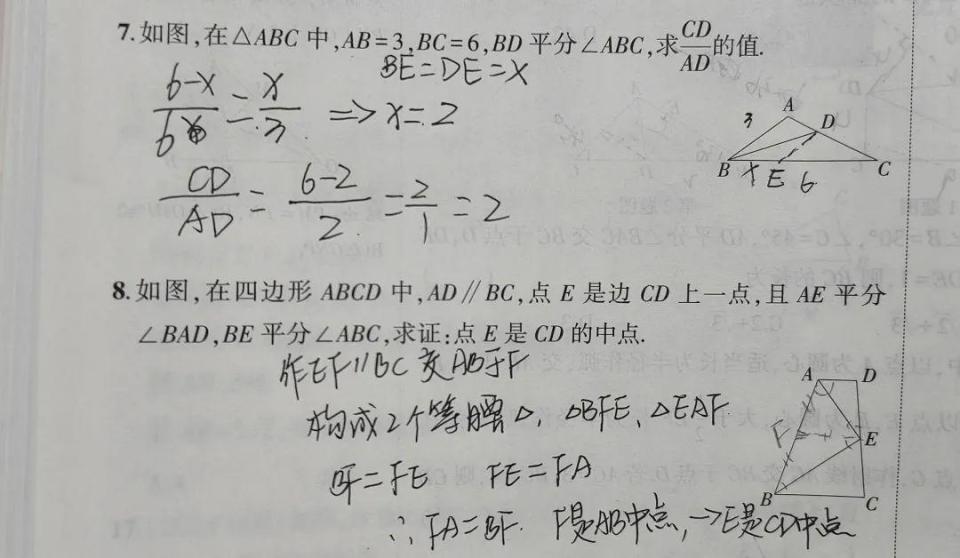 7.如图,在△ABC中,AB=3,BC=6,BD平分∠ABC,求CD/AD的值.
BE=DE=x
(6-x)/6=x/3 ⇒x=2
A
3
D
B x E 6 C
CD/AD=(6-2)/2=2/1=2
8.如图,在四边形ABCD中,AD∥BC,点E是边CD上一点,且AE平分
∠BAD,BE平分∠ABC,求证:点E是CD的中点.
作EF//BC交AB于F
构成2个等腰△, △BFE、△EAF
BF=FE FE=FA
∴FA=BF. F是AB中点,→E是CD中点
A D
F E
B C